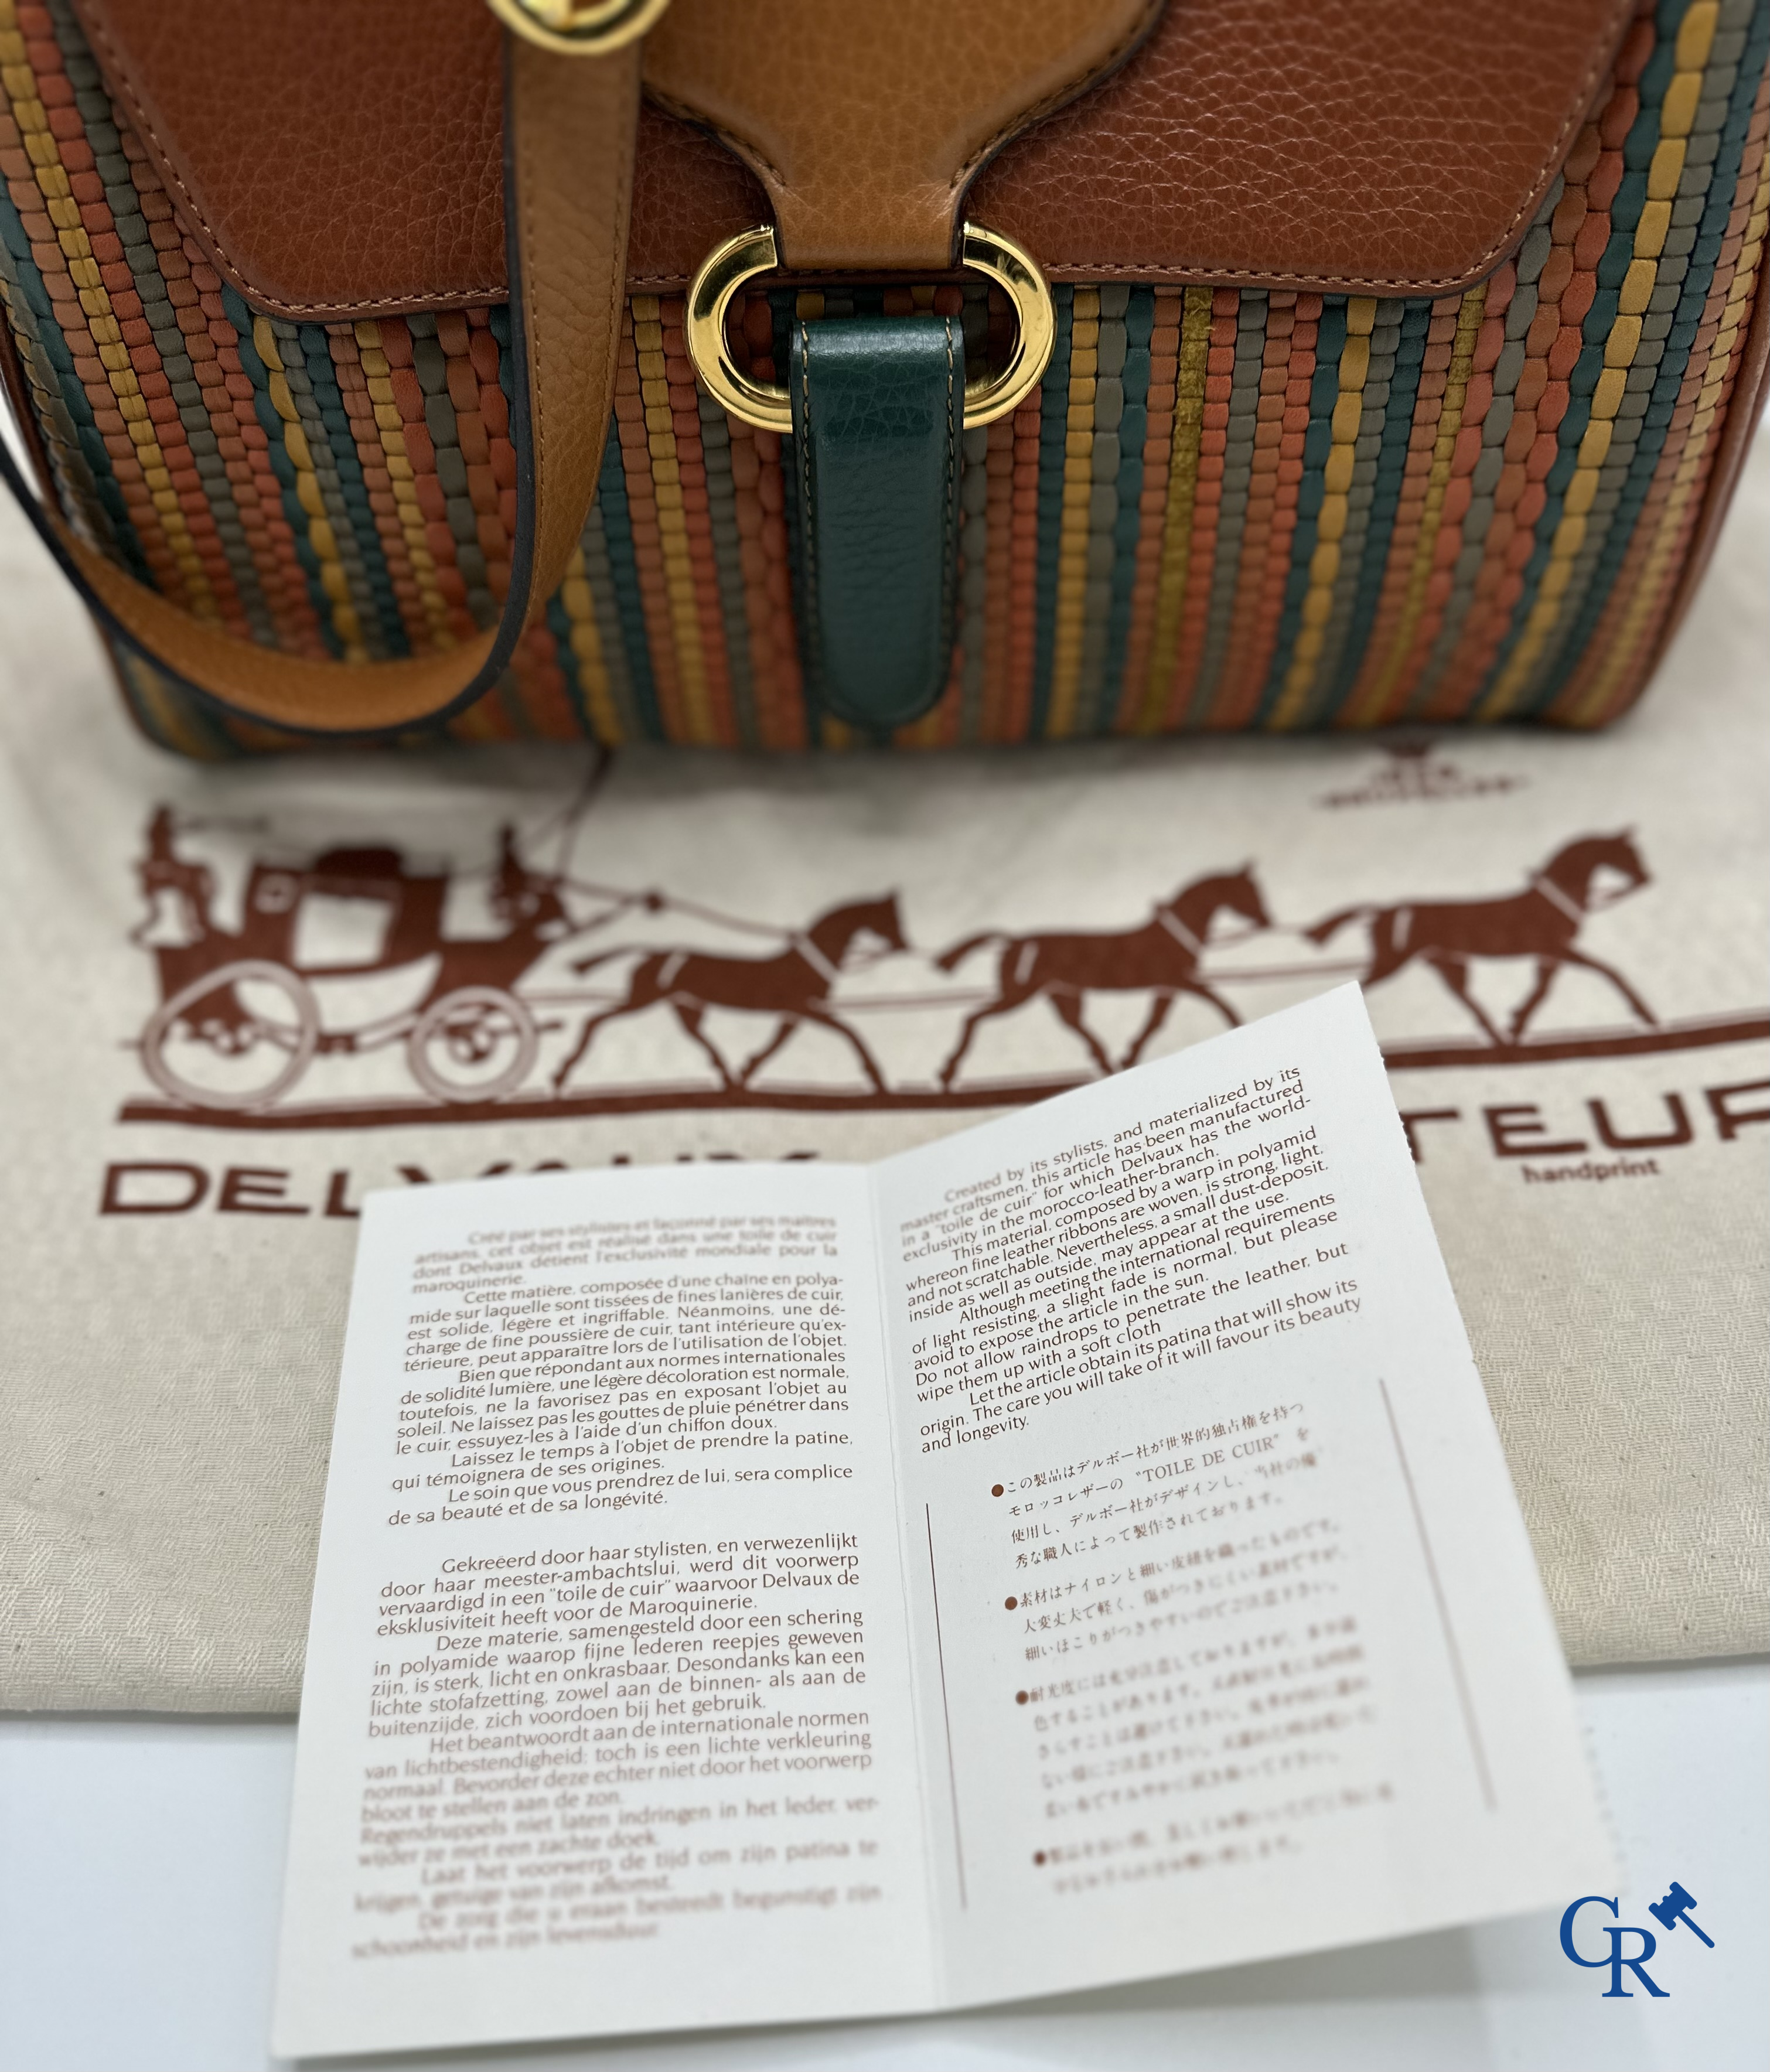 DELVAUX
TEUR
handprint
Créé par ses stylistes et façonné par ses maîtres
artisans, cet objet est réalisé dans une toile de cuir
dont Delvaux détient l'exclusivité mondiale pour la
maroquinerie.
Cette matière, composée d'une chaîne en polya-
mide sur laquelle sont tissées de fines lanières de cuir,
est solide, légère et ingriffable. Néanmoins, une dé-
charge de fine poussière de cuir, tant intérieure qu'ex-
térieure, peut apparaître lors de l'utilisation de l'objet.
Bien que répondant aux normes internationales
de solidité lumière, une légère décoloration est normale,
toutefois, ne la favorisez pas en exposant l'objet au
soleil. Ne laissez pas les gouttes de pluie pénétrer dans
le cuir, essuyez-les à l'aide d'un chiffon doux.
Laissez le temps à l'objet de prendre la patine,
qui témoignera de ses origines.
Le soin que vous prendrez de lui, sera complice
de sa beauté et de sa longévité.
Gekreëerd door haar stylisten, en verwezenlijkt
door haar meester-ambachtslui, werd dit voorwerp
vervaardigd in een "toile de cuir" waarvoor Delvaux de
eksklusiviteit heeft voor de Maroquinerie.
Deze materie, samengesteld door een schering
in polyamide waarop fijne lederen reepjes geweven
zijn, is sterk, licht en onkrasbaar. Desondanks kan een
lichte stofafzetting, zowel aan de binnen- als aan de
buitenzijde, zich voordoen bij het gebruik.
Het beantwoordt aan de internationale normen
van lichtbestendigheid; toch is een lichte verkleuring
normaal. Bevorder deze echter niet door het voorwerp
bloot te stellen aan de zon.
Regendruppels niet laten indringen in het leder, ver-
wijder ze met een zachte doek.
Laat het voorwerp de tijd om zijn patina te
krijgen, getuige van zijn afkomst.
De zorg die u eraan besteedt begunstigt zijn
schoonheid en zijn levensduur.
Created by its stylists, and materialized by its
master craftsmen, this article has been manufactured
in a "toile de cuir" for which Delvaux has the world-
exclusivity in the morocco-leather-branch.
This material, composed by a warp in polyamid
whereon fine leather ribbons are woven, is strong, light,
and not scratchable. Nevertheless, a small dust-deposit,
inside as well as outside, may appear at the use.
Although meeting the international requirements
of light resisting, a slight fade is normal, but please
avoid to expose the article in the sun.
Do not allow raindrops to penetrate the leather, but
wipe them up with a soft cloth
Let the article obtain its patina that will show its
origin. The care you will take of it will favour its beauty
and longevity.
●この製品はデルボー社が世界的独占権を持つ
モロッコレザーの "TOILE DE CUIR" を
使用し、デルボー社がデザインし、当社の優
秀な職人によって製作されております。
●素材はナイロンと細い皮紐を織ったものです。
大変丈夫で軽く、傷がつきにくい素材ですが、
細いほこりがつきやすいのでご注意下さい。
CR